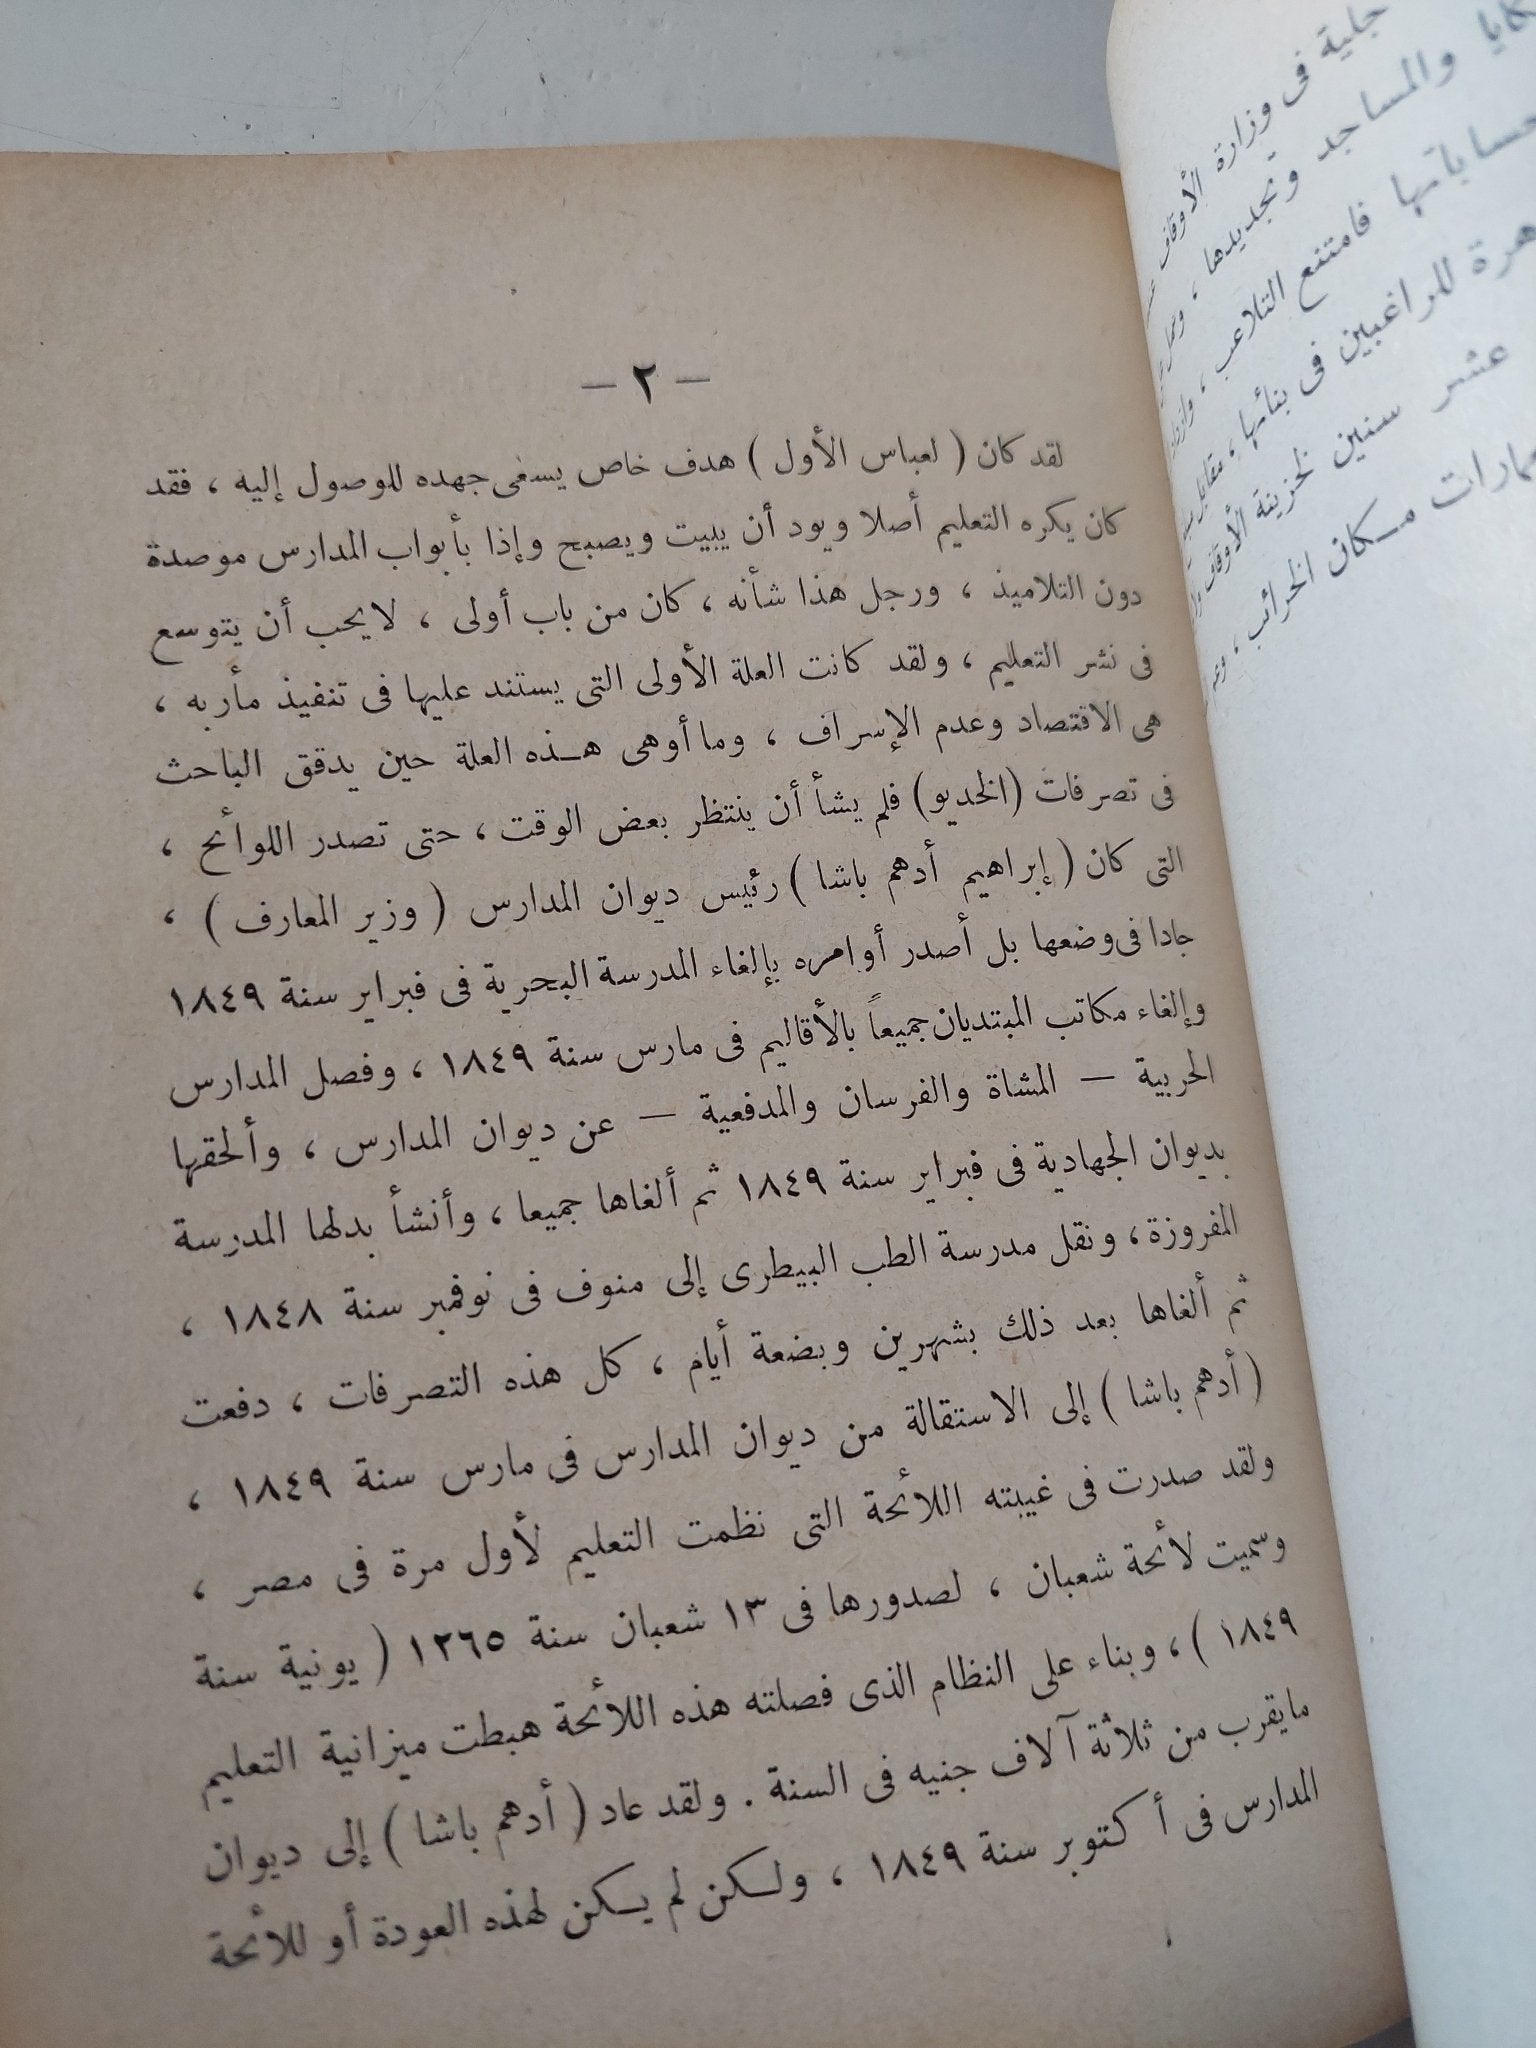 — ٢ —
لقد كان ( لعباس الأول ) هدف خاص يسعى جهده للوصول إليه ، فقد
كان يكره التعليم أصلا ويود أن يبيت ويصبح وإذا بأبواب المدارس موصدة
دون التلاميذ ، ورجل هذا شأنه ، كان من باب أولى ، لا يحب أن يتوسع
فى نشر التعليم ، ولقد كانت العلة الأولى التى يستند عليها فى تنفيذ مأربه ،
هى الاقتصاد وعدم الإسراف ، وما أوهى هـذه العلة حين يدقق الباحث
فى تصرفات (الخديو) فلم يشأ أن ينتظر بعض الوقت ، حتى تصدر اللوائح ،
التى كان ( إبراهيم أدهم باشا ) رئيس ديوان المدارس ( وزير المعارف ) ،
جادا فى وضعها بل أصدر أوامره بإلغاء المدرسة البحرية فى فبراير سنة ١٨٤٩
وإلغاء مكاتب المبتديان جميعاً بالأقاليم فى مارس سنة ١٨٤٩ ، وفصل المدارس
الحربية — المشاة والفرسان والمدفعية — عن ديوان المدارس ، وألحقها
بديوان الجهادية فى فبراير سنة ١٨٤٩ ثم ألغاها جميعا ، وأنشأ بدلها المدرسة
المفروزة ، ونقل مدرسة الطب البيطرى إلى منوف فى نوفمبر سنة ١٨٤٨ ،
ثم ألغاها بعد ذلك بشهرين وبضعة أيام ، كل هذه التصرفات ، دفعت
( أدهم باشا ) إلى الاستقالة من ديوان المدارس فى مارس سنة ١٨٤٩ ،
ولقد صدرت فى غيبته اللائحة التى نظمت التعليم لأول مرة فى مصر ،
وسميت لائحة شعبان ، لصدورها فى ١٣ شعبان سنة ١٢٦٥ ( يونية سنة
١٨٤٩ ) ، وبناء على النظام الذى فصلته هذه اللائحة هبطت ميزانية التعليم
مايقرب من ثلاثة آلاف جنيه فى السنة . ولقد عاد ( أدهم باشا ) إلى ديوان
المدارس فى أكتوبر سنة ١٨٤٩ ، ولـكن لم يـكن لهذه العودة أو للائحة
جلية فى وزارة الأوقاف
والمساجد وتجديدها ،
حساباتها فامتنع التلاعب ،
للراغبين فى بنائها ، مقابل
عشر سنين لخزينة الأوقاف
مـكان الخرائب ،